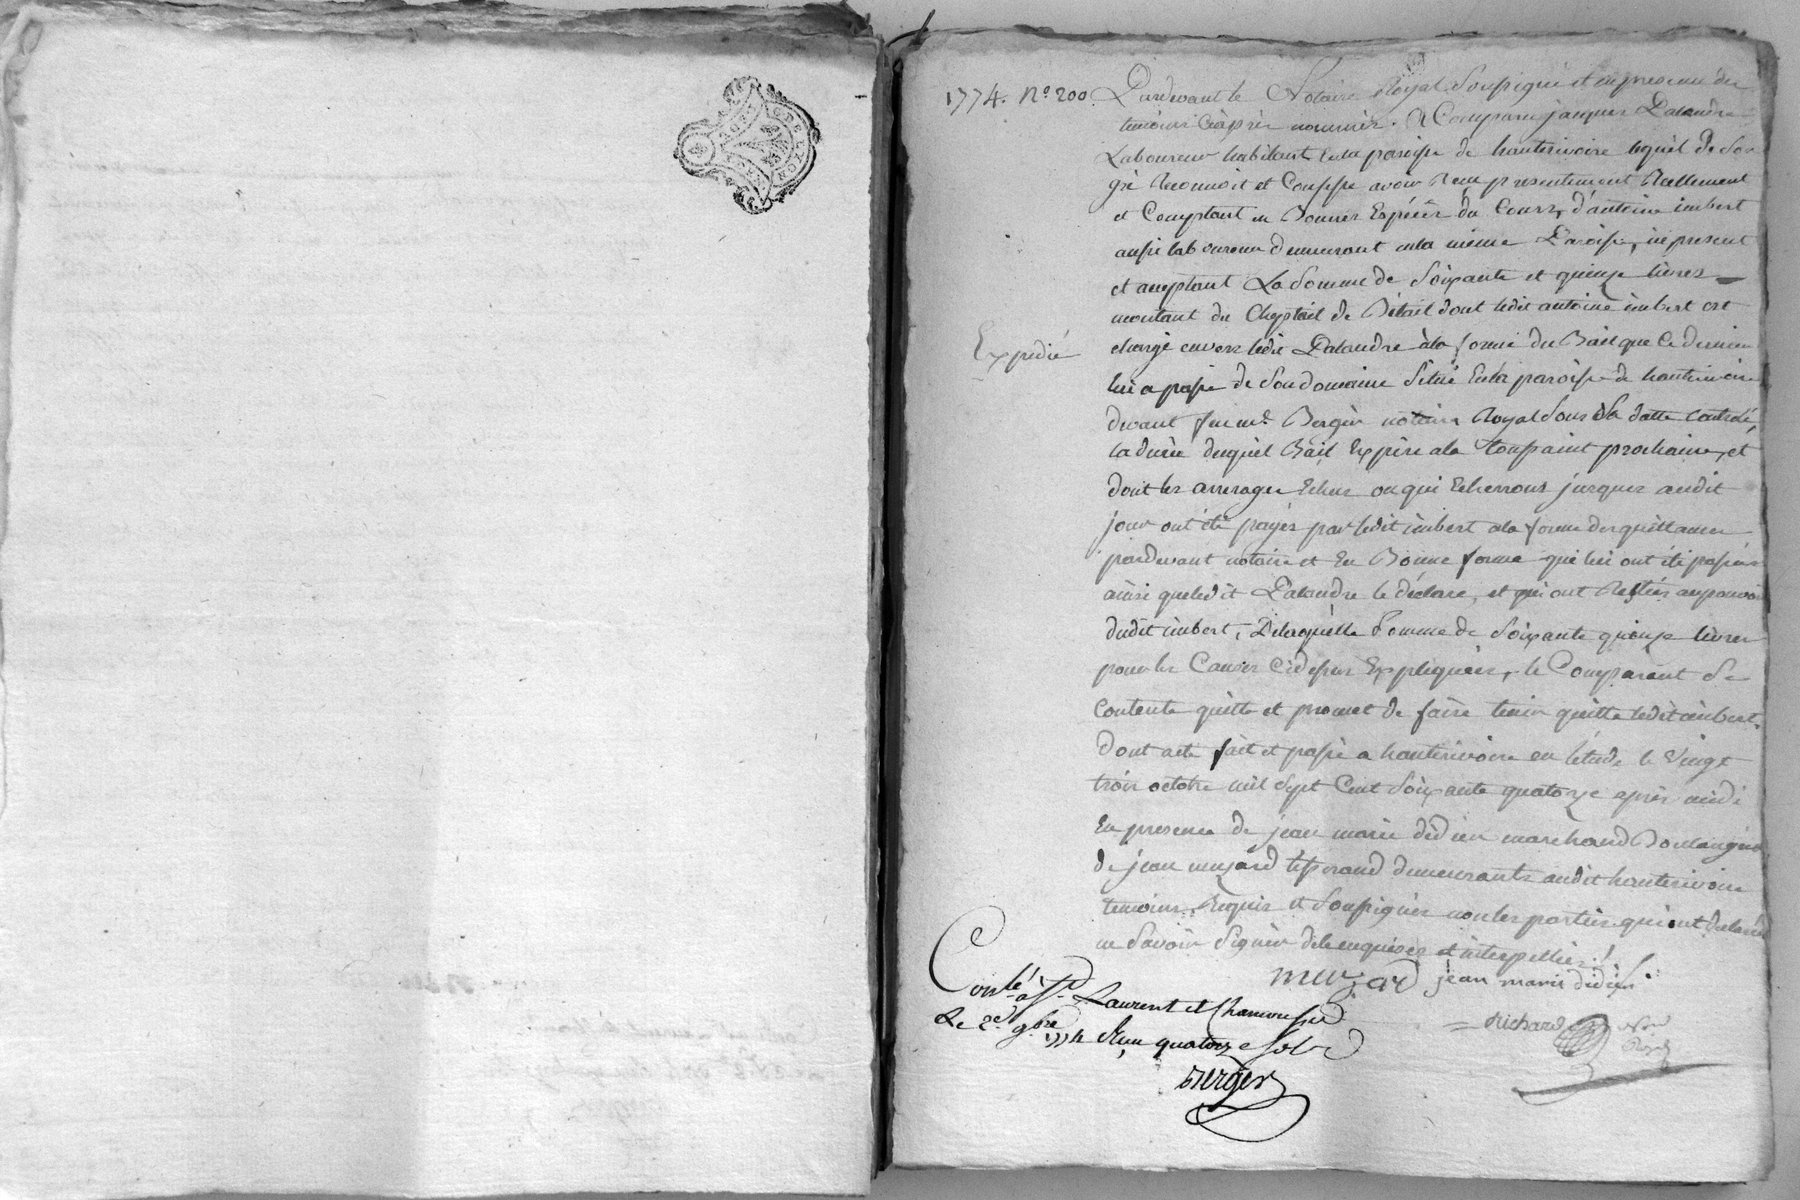 GEN. DE LYON
1774. No. 200. Pardevant le Notaire Royal Soussigné et en presence des
temoins cieaprès nommés. A Comparu jacques Palandre
Laboureur habitant enla paroisse de hauterivoire lequel de Son
gré Reconnoit et Confesse avoir Receu presentement Reellement
et Comptant en Bonnes Espéces du Cours, d'antoine imbert
aussi laboureur demeurant enla même Paroisse, icy present
et acceptant La Somme de Soixante et quinze livres
montant du Cheptail de Bétail dont ledit antoine imbert est
chargé envers ledit Palandre àla forme du Bail que Ce dernier
Expedié
lui a passé de Son domaine Situé enla paroisse de hauterivoire
devant feu me. Bergér notaire Royal Sous Sa datte controlé,
la durée duquel Bail Expire ala toussaint prochaine, et
dont les arrerages Echus ou qui Echerrons jusques audit
jour ont été payés par ledit imbert ala forme des quittances
pardevant notaire et En Bonne forme qui lui ont été passées
ainsi queledit Palandre le déclare, et qui ont Restées aupouvoir
dudit imbert, Delaquelle Somme de Soixante quinze livres
pour les Causes Cidessus Expliquées, le Comparant Se
Contente quitte et promet de faire tenir quitte ledit imbert.
Dont acte fait et passé a hauterivoire en létude le vingt
trois octobre mil Sept Cent Soixante quatorze après midi
En presence de jean marie didier marchand Boulangér
de jean muzard tisserand demeurants audit hauterivoire
temoins Requis et Soussignés non les parties qui ont declaré
ne Savoir Signer de ce enquises et interpellées.
muzard jean marie didier
Richard Nore Royal
Conlé. a St. Laurent et Chamousset
Le 2e. 9bre 1774 Reçu quatorze Sols
Berger